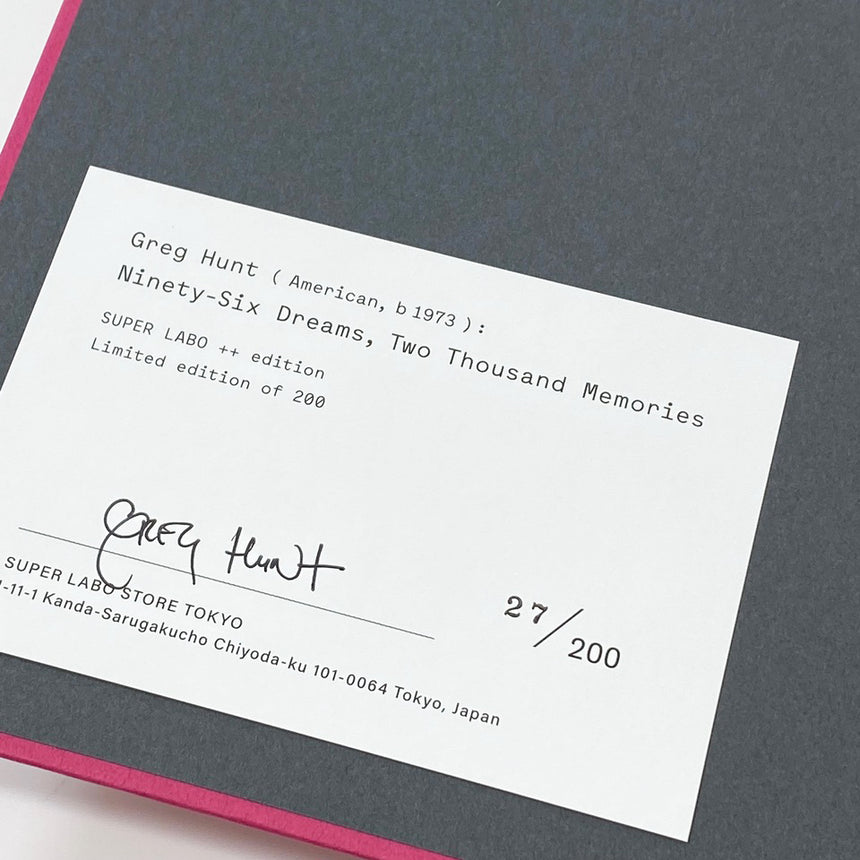 Greg Hunt ( American, b 1973 ):
Ninety-Six Dreams, Two Thousand Memories
SUPER LABO ++ edition
Limited edition of 200
GREG HUNT
27/200
SUPER LABO STORE TOKYO
-11-1 Kanda-Sarugakucho Chiyoda-ku 101-0064 Tokyo, Japan